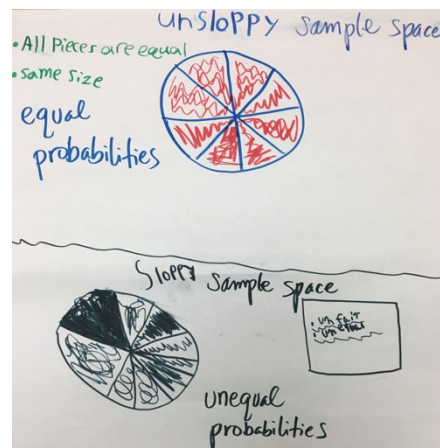 unSLOPPY sample space
• All Pieces are equal
• same size
equal
probabilities
Sloppy sample space
• unfair
• unequal
unequal
probabilities